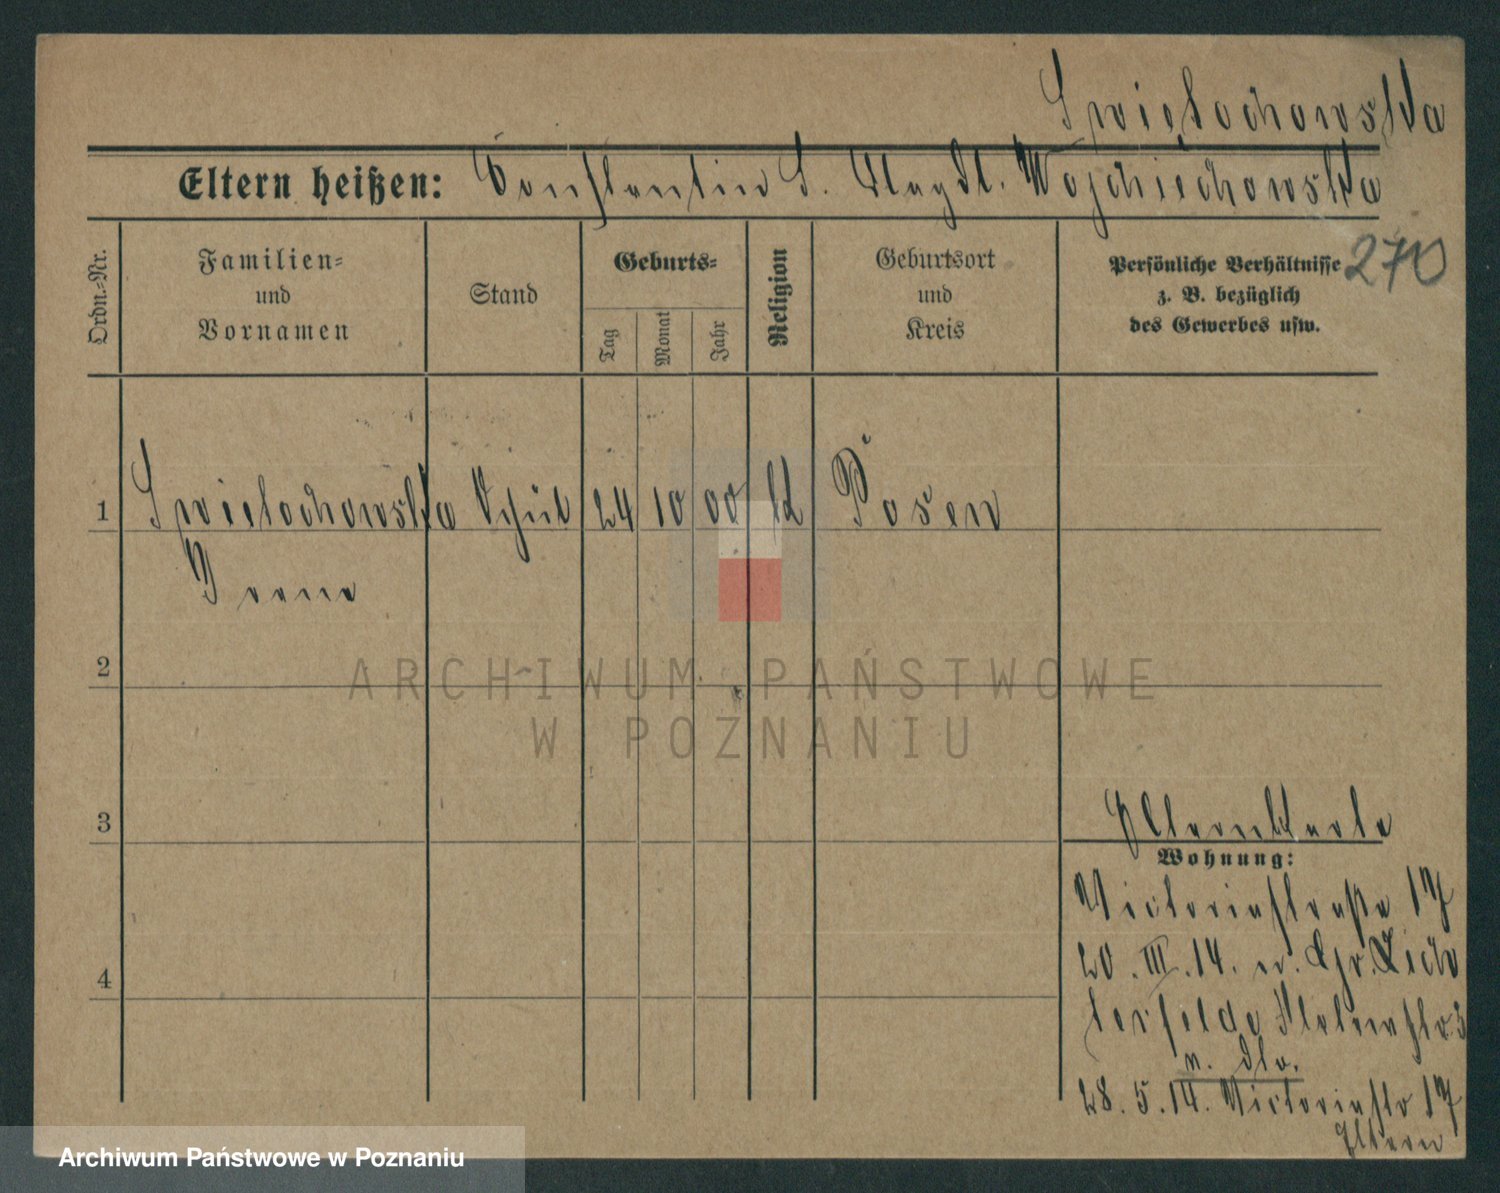 Swielochowska
Eltern heißen: Constantin S. Magdl. Wojchiechowska
Ordn.-Nr.
Familien-
und
Vornamen
Stand
Geburts-
Tag
Monat
Jahr
Religion
Geburtsort
und
Kreis
Persönliche Verhältnisse
z. B. bezüglich
des Gewerbes usw.
270
1 Swielochowska Schül 24 10 00 kl Posen
Irene
2
ARCHIWUM PAŃSTWOWE
W POZNANIU
3
Elternkarte
Wohnung:
Victoriastraße 17
20. III. 14. n. Gr. Lich
terfelde
4
n. dlv.
28. 5. 14. Victoriastr 17
Eltern
Archiwum Państwowe w Poznaniu